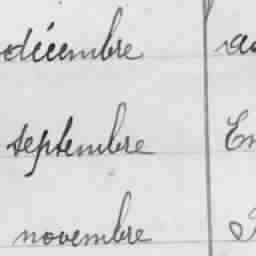 décembre
septembre
novembre